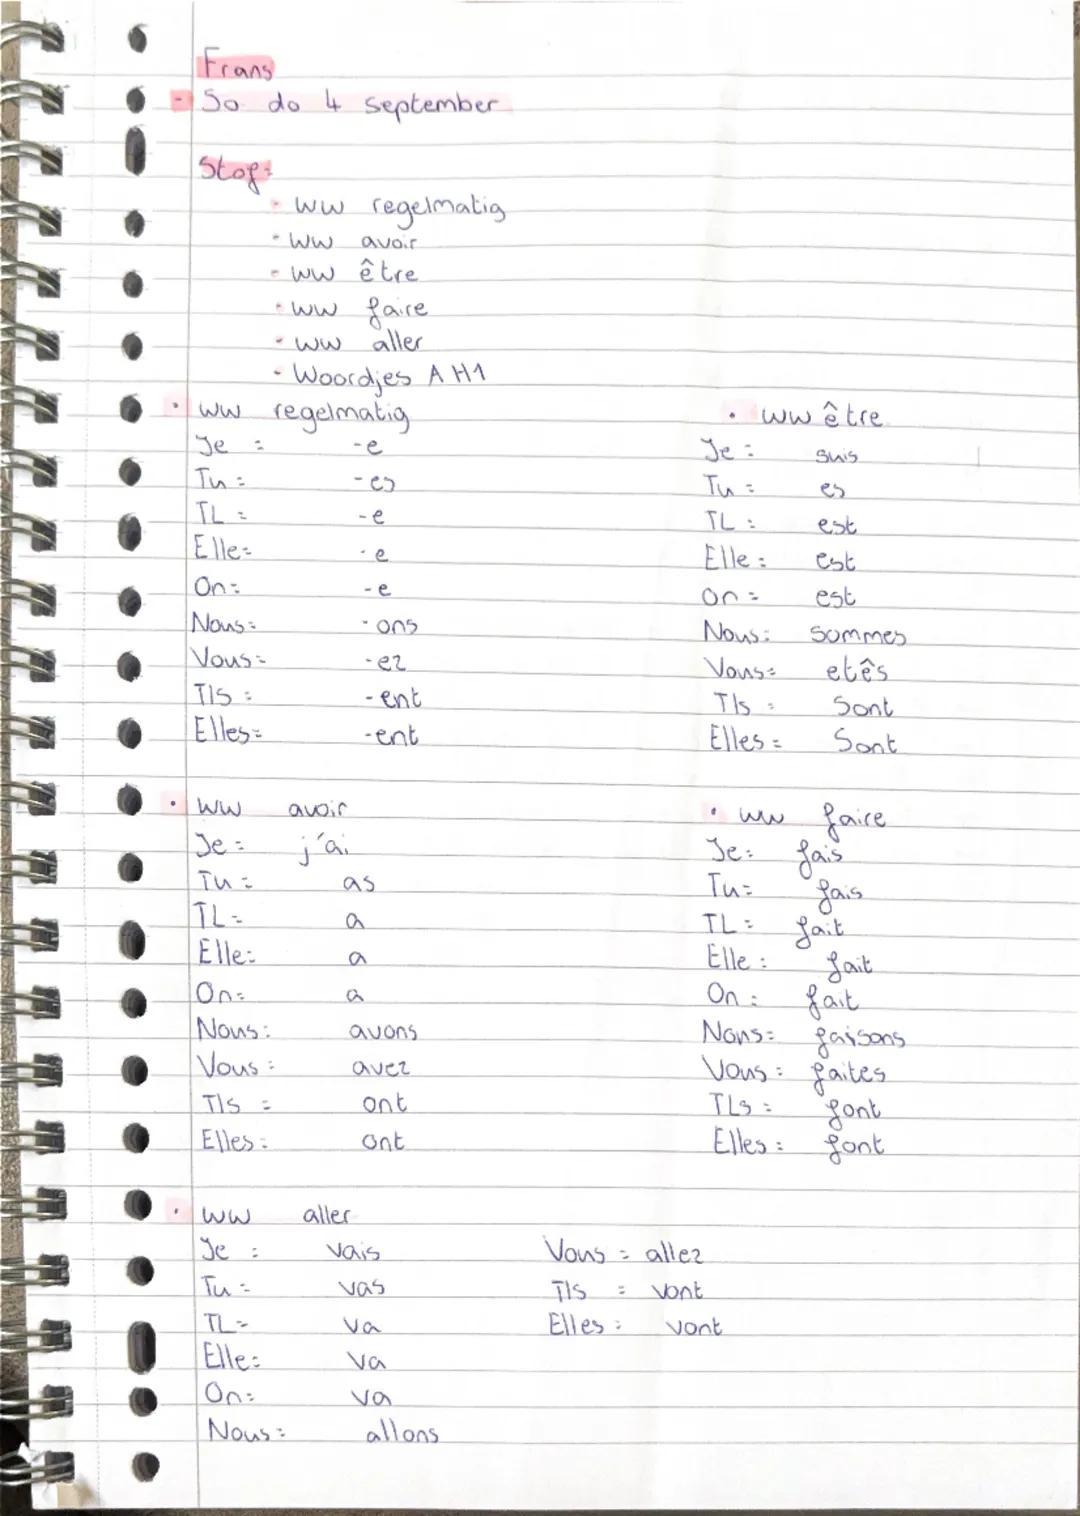 Frans
- So do 4 september
Stof:
- ww regelmatig
- ww avoir
- ww être
- ww faire
- ww aller
- Woordjes A H1
• ww regelmatig
Je = -e
Tu = -es
IL = -e
Elle= -e
On= -e
Nous= -ons
Vous= -ez
Ils = -ent
Elles= -ent
• ww être
Je = suis
Tu = es
IL = est
Elle = est
On = est
Nous= sommes
Vous= etês
Ils = Sont
Elles = Sont
• ww avoir
Je = j'ai
Tu = as
IL = a
Elle= a
On= a
Nous= avons
Vous = avez
Ils = ont
Elles= ont
• ww faire
Je= fais
Tu= fais
IL = fait
Elle = fait
On = fait
Nous= faisons
Vous= faites
ILs = font
Elles = font
• ww aller
Je = vais
Tu = vas
IL= va
Elle= va
On= va
Nous= allons
Vous = allez
Ils = vont
Elles = vont